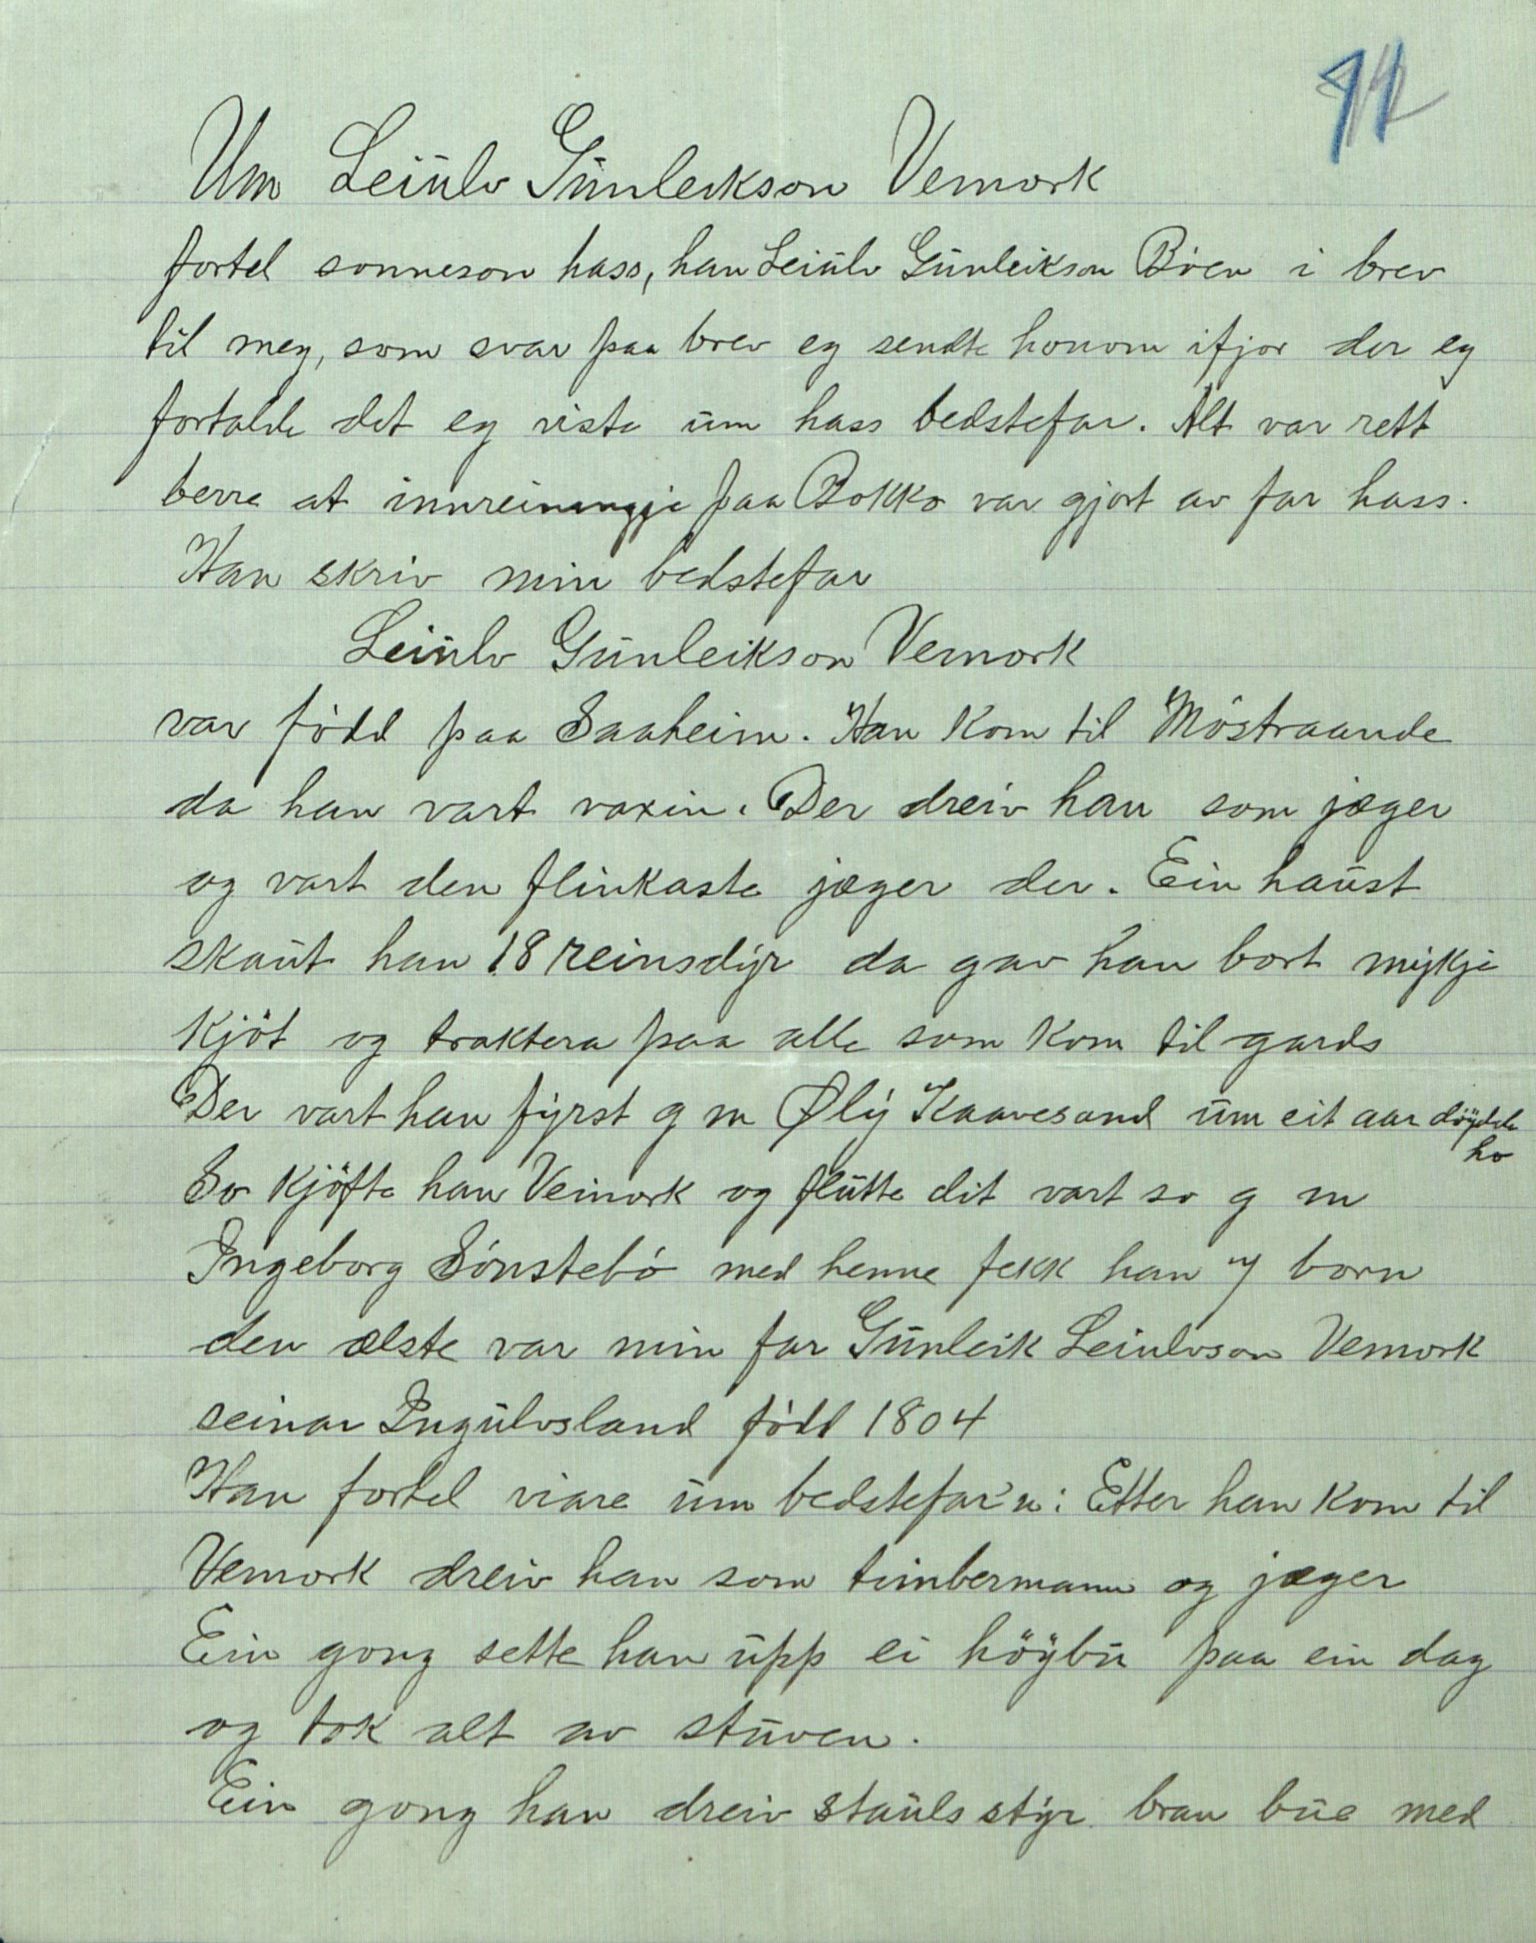 Um Leiulv Gunleikson Vemork
fortel sonneson hass, han Leiulv Gunleikson Böen i brev
til meg, som svar paa brev eg sendte honom ifjor der eg
fortalde det eg viste um hass bedstefar. Alt var rett
berre at innreiningji paa Bokko var gjort av far hass.
Han skriv min bedstefar
Leiulv Gunleikson Vemork
var född paa Saaheim. Han kom til Möstraande
da han vart vaxin. Der dreiv han som jæger
og vart den flinkaste jæger der. Ein haust
skaut han 18 reinsdyr da gav han bort mykje
kjöt og traktera paa alle som kom til gards
Der vart han fyrst g m Øly Kaavesand um eit aar döydde
ho
So kjöfte han Vemork og flutte dit vart so g m
Ingeborg Sönstebö med henne fekk han 7 born
den ælste var min far Gunleik Leiulvson Vemork
seinar Ingulvsland född 1804
Han fortel viare um bedstefar'n: Etter han kom til
Vemork dreiv han som timbermann og jæger
Ein gong sette han upp ei höybu paa ein dag
og tok alt av stuven.
Ein gong han dreiv stauls styr bran bue med